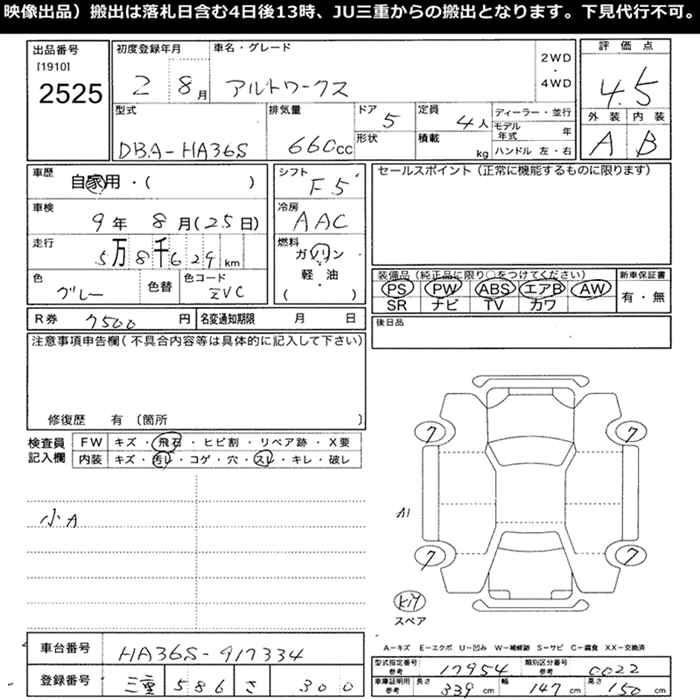 映像出品）搬出は落札日含む4日後13時、JU三重からの搬出となります。下見代行不可。
出品番号
[1910]
2525
初度登録年月
2 8月
車名・グレード
アルトワークス
2WD
・
4WD
評価点
4.5
外装 内装
A B
型式
DBA-HA36S
排気量
660cc
ドア
5
形状
定員
4人
積載
kg
ディーラー・並行
モデル年式 年
ハンドル 左・右
車歴
自家用・( )
車検
9年 8月(25日)
走行
5万8千629km
色
グレー
色替
色コード
ZVC
シフト
F5
冷房
AAC
燃料
ガソリン
軽・油
( )
セールスポイント（正常に機能するものに限ります）
装備品（純正品に限り○をつけてください）
PS PW ABS エアB AW
SR ナビ TV カワ
新車保証書
有・無
後日品
R券 7500円
名変通知期限 月 日
注意事項申告欄（不具合内容等は具体的に記入して下さい）
修復歴 有〔箇所 〕
検査員
記入欄
FW キズ・飛石・ヒビ割・リペア跡・X要
内装 キズ・汚レ・コゲ・穴・スレ・キレ・破レ
小A
7 7
A1
7 7
キレイ
スペア
A−キズ E−エクボ U−凹み W−補修跡 S−サビ C−腐食 XX−交換済
車台番号 HA36S-917334
登録番号 三重 586 さ 300
型式指定番号 参考 17954
類別区分番号 参考 0022
車庫証明用 参考 長さ 339cm 幅 147cm 高さ 150cm